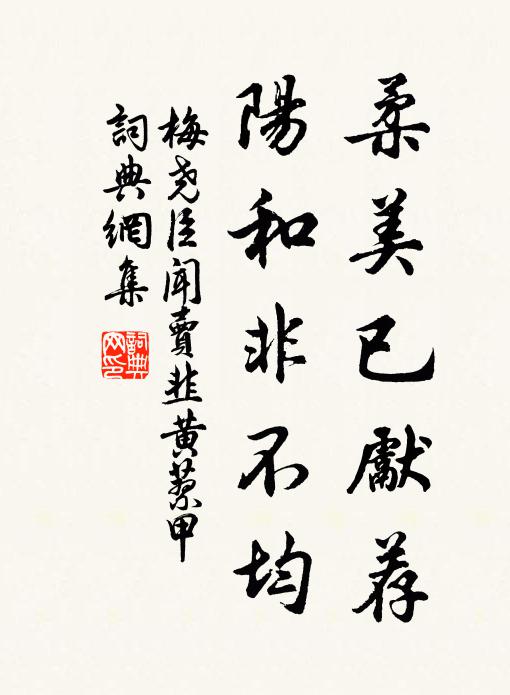 柔美已獻荐
陽和非不均
梅堯臣聞賣韭黃蓼甲
詞典網集
詞典網印